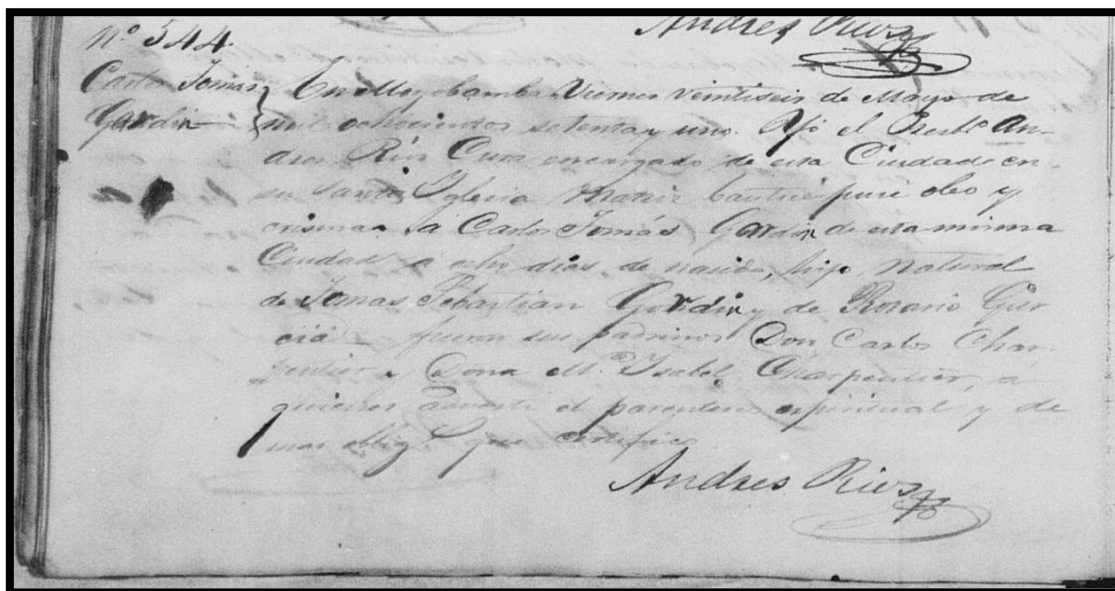 Andres Rios
Nº 544.
Carlos Tomas
Gardin
En Moyobamba Viernes veintiseis de Mayo de
mil ochocientos setenta y uno. Yo el Presbº An-
dres Rios Cura encargado de esta Ciudad en
su Santa Yglesia Matriz bauticé puse oleo y
crisma a Carlos Tomás Gardin de esta misma
Ciudad a ocho dias de nacido, hijo natural
de Tomas Sebastian Gardin y de Rosario Gar
cia fueron sus padrinos Don Carlos Char-
pentier y Dona M.ª Ysabel Charpentier, a
quienes adverti el parentesco espiritual y de
mas oblig.s que certifico
Andres Rios